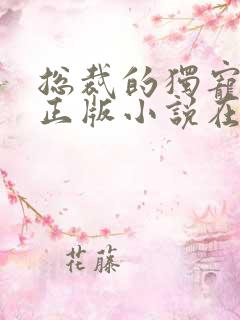 总裁的獨寵
正版小說在
花藤